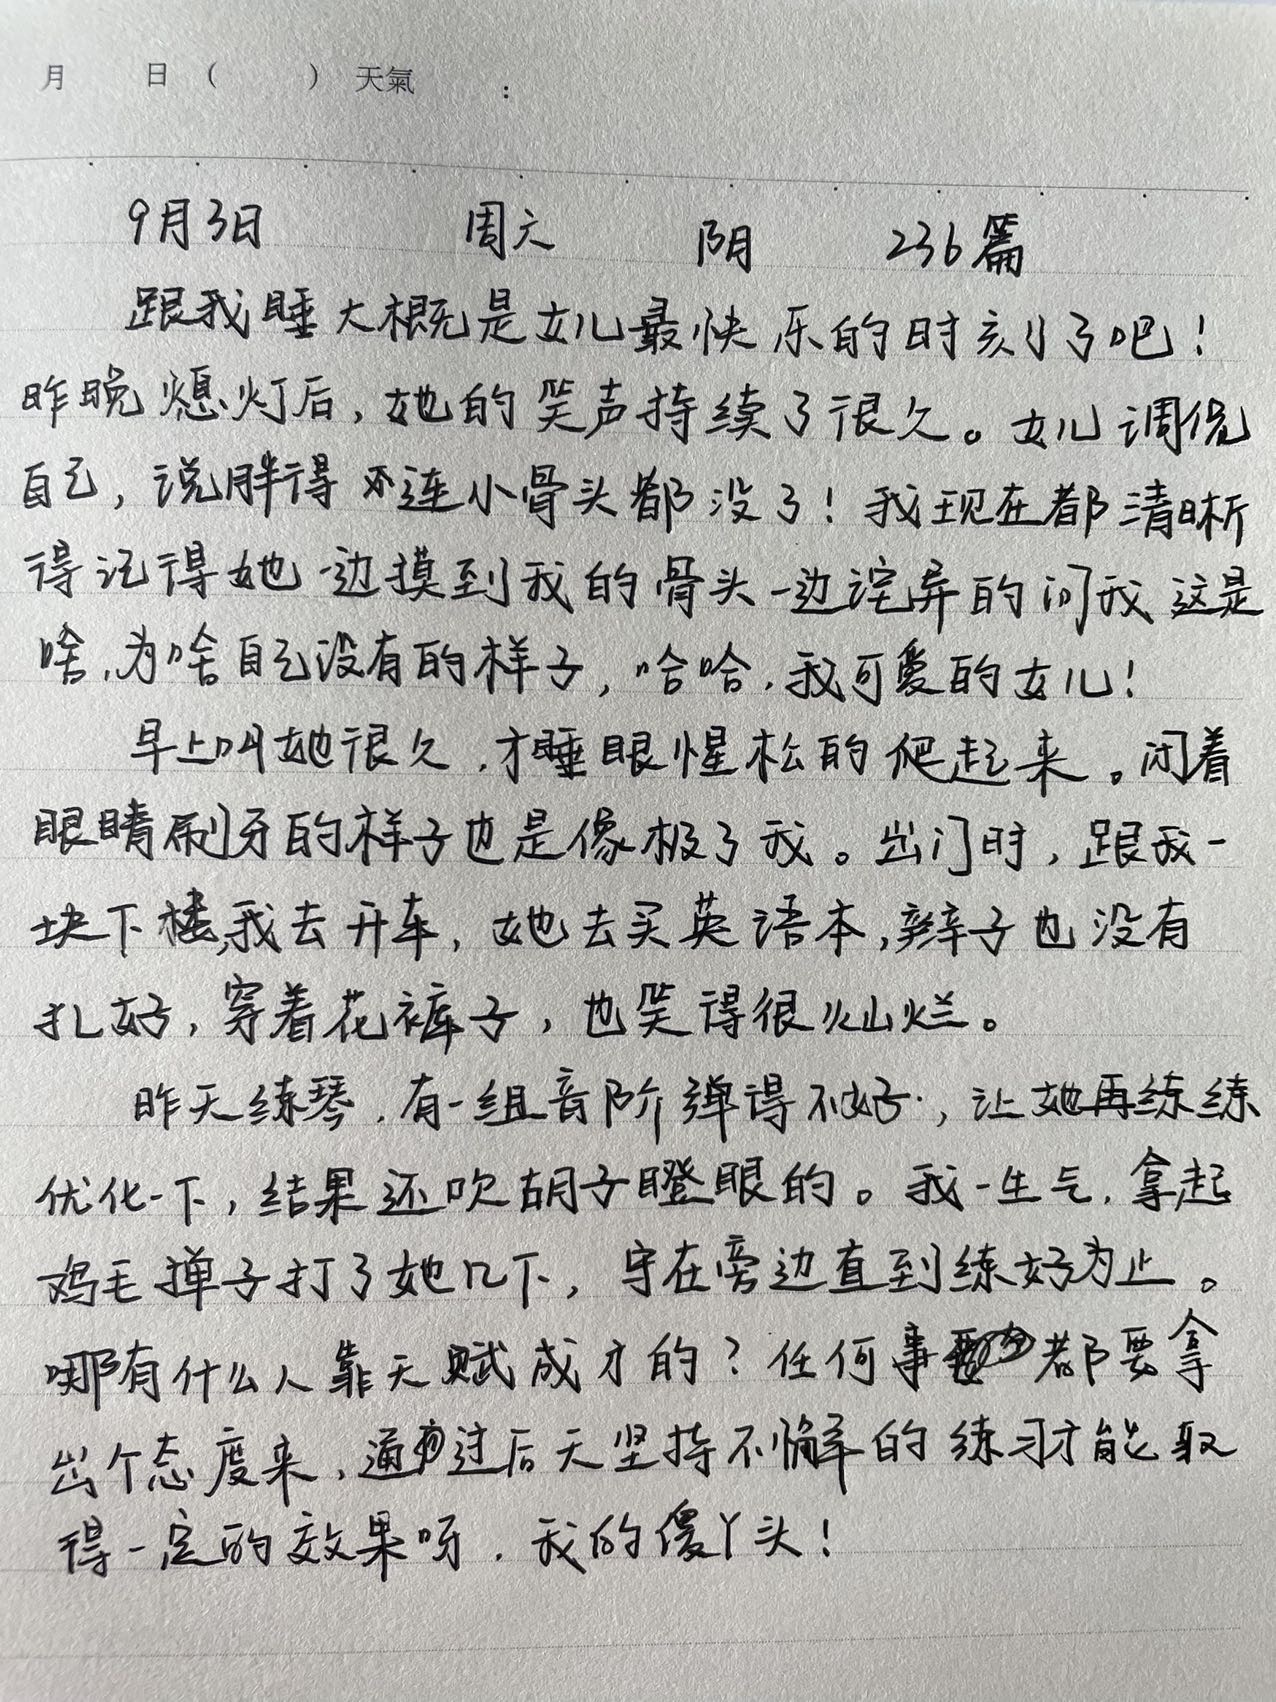 月 日 ( ) 天氣 :
9月3日 周六 阴 236篇
跟我睡大概是女儿最快乐的时刻了吧！
昨晚熄灯后，她的笑声持续了很久。女儿调侃
自己，说胖得连小骨头都没了！我现在都清晰
得记得她一边摸到我的骨头一边诧异的问我这是
啥，为啥自己没有的样子，哈哈，我可爱的女儿！
早上叫她很久，才睡眼惺松的爬起来。闭着
眼睛刷牙的样子也是像极了我。出门时，跟我一
块下楼，我去开车，她去买英语本，辫子也没有
扎好，穿着花裤子，也笑得很灿烂。
昨天练琴，有一组音阶弹得不好，让她再练练
优化一下，结果还吹胡子瞪眼的。我一生气，拿起
鸡毛掸子打了她几下，守在旁边直到练好为止。
哪有什么人靠天赋成才的？任何事都要拿
出个态度来，通过后天坚持不懈的练习才能取
得一定的效果呀，我的傻丫头！